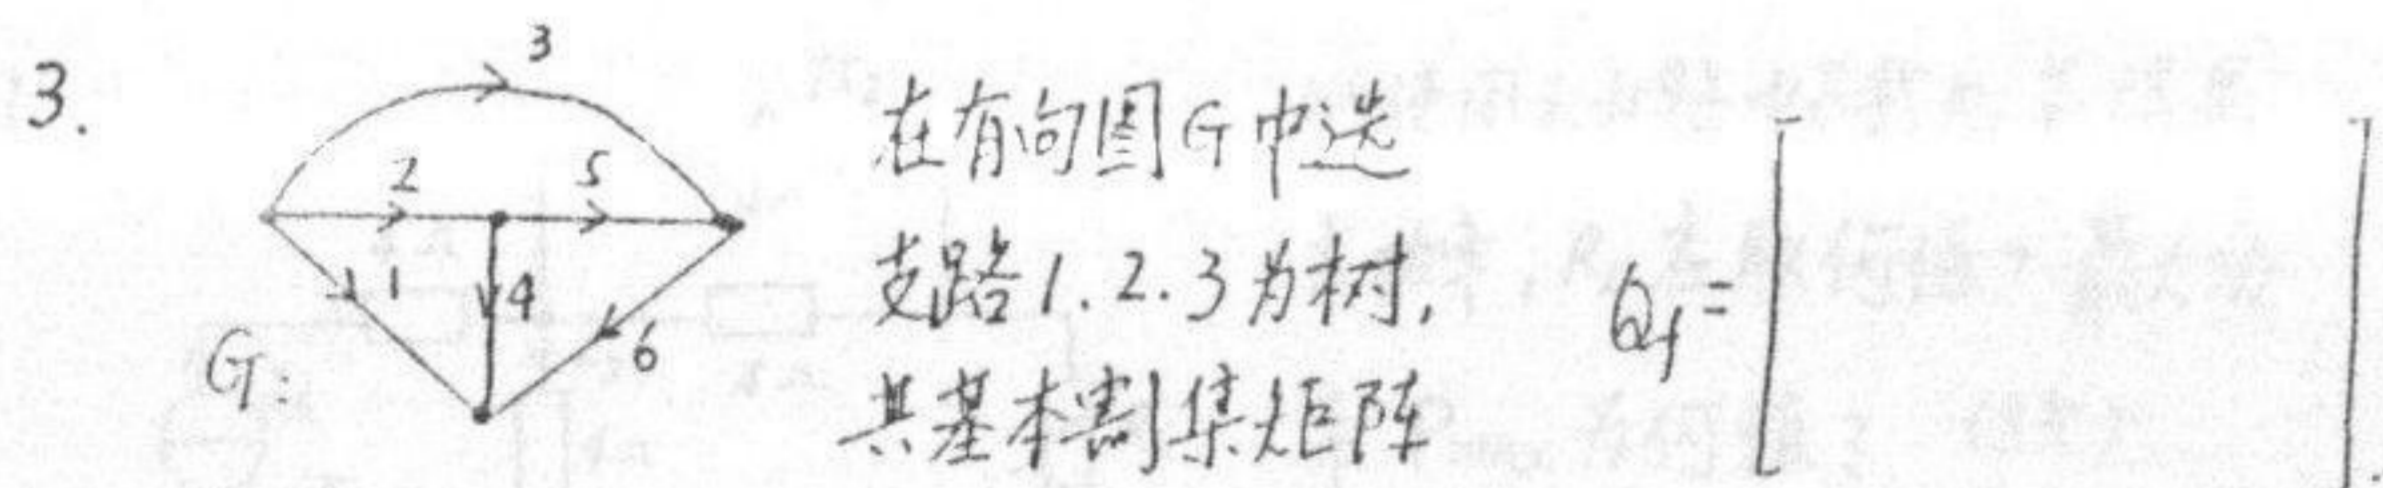 3.
3
2
5
1
4
6
G:
在有向图G中选
支路1.2.3为树,
其基本割集矩阵
Qf=